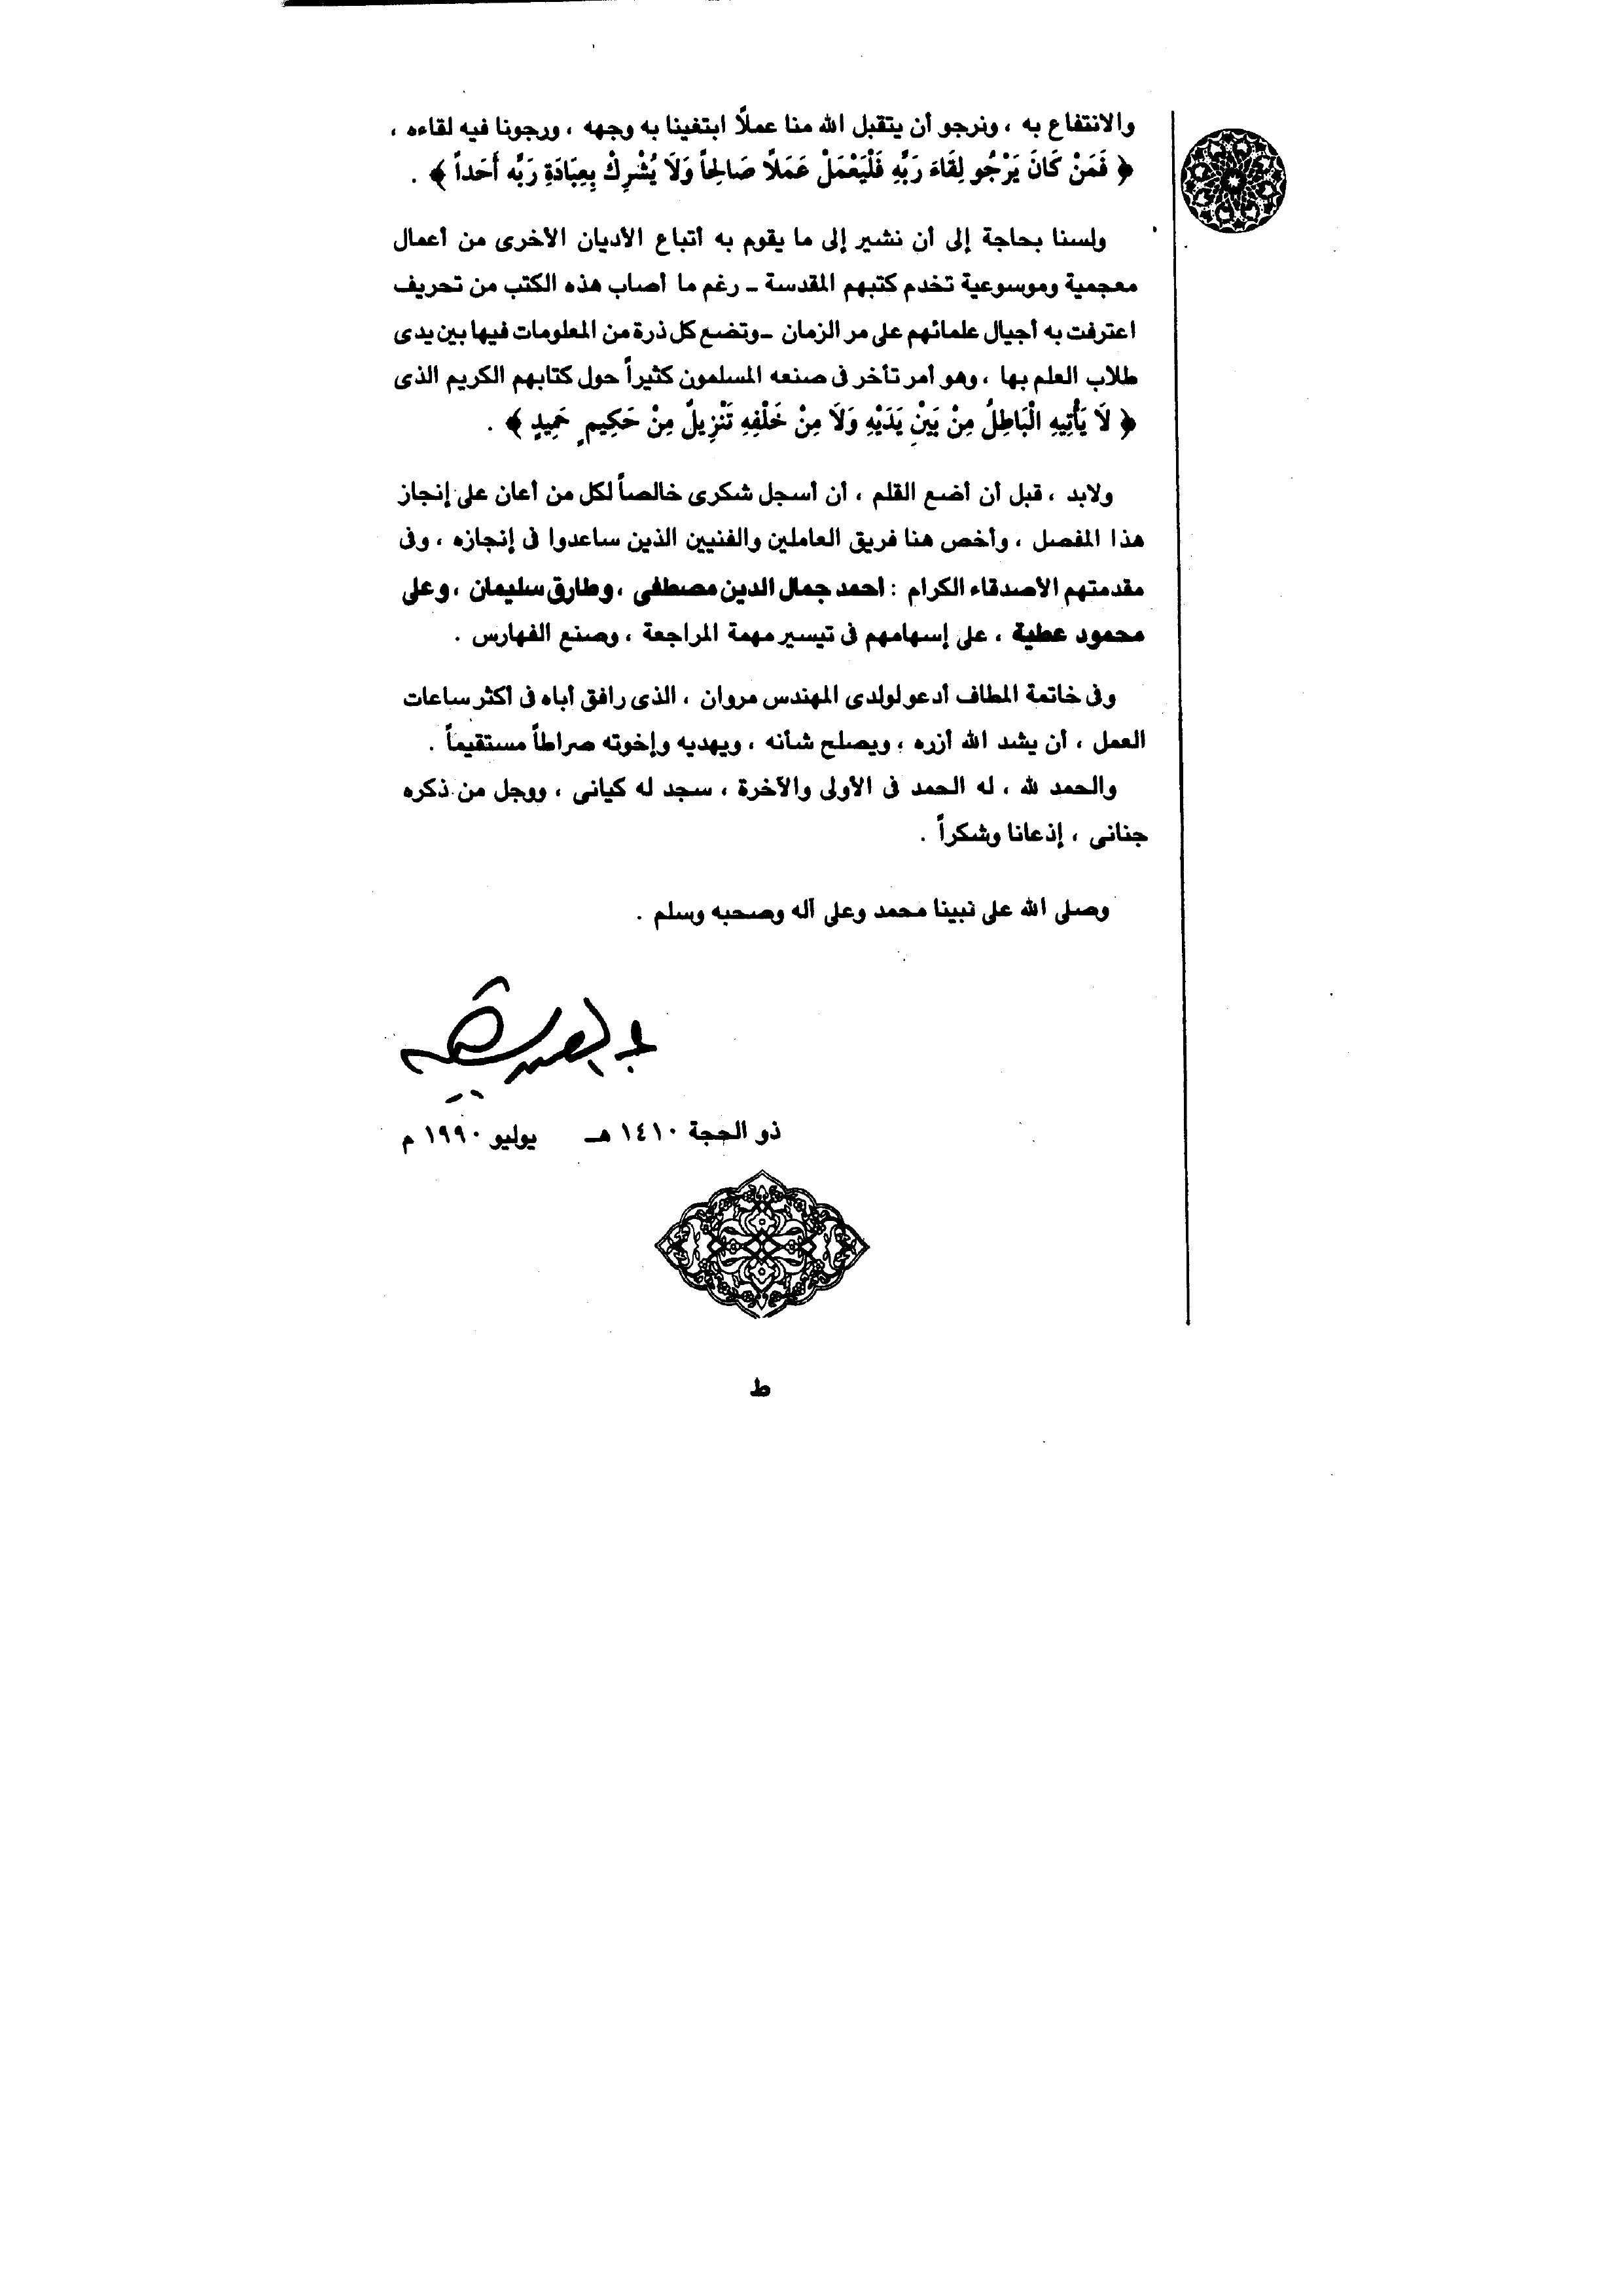 والانتفاع به ، ونرجو أن يتقبل الله منا عملاً ابتغينا به وجهه ، ورجونا فيه لقاءه ،
﴿ فَمَنْ كَانَ يَرْجُو لِقَاءَ رَبِّهِ فَلْيَعْمَلْ عَمَلًا صَالِحًاً وَلَا يُشْرِكْ بِعِبَادَةِ رَبِّه أَحَداً ﴾ .
ولسنا بحاجة إلى أن نشير إلى ما يقوم به أتباع الأديان الأخرى من أعمال
معجمية وموسوعية تخدم كتبهم المقدسة ـ رغم ما أصاب هذه الكتب من تحريف
اعترفت به أجيال علمائهم على مر الزمان ـ وتضع كل ذرة من المعلومات فيها بين يدى
طلاب العلم بها ، وهو أمر تأخر فى صنعه المسلمون كثيراً حول كتابهم الكريم الذى
﴿ لَا يَأْتِيهِ الْبَاطِلُ مِنْ بَيْنِ يَدَيْهِ وَلَا مِنْ خَلْفِهِ تَنْزِيلٌ مِنْ حَكِيمٍ حَمِيدٍ ﴾ .
ولابد ، قبل أن أضع القلم ، أن أسجل شكرى خالصاً لكل من أعان على إنجاز
هذا المفصل ، وأخص هنا فريق العاملين والفنيين الذين ساعدوا فى إنجازه ، وفى
مقدمتهم الأصدقاء الكرام : أحمد جمال الدين مصطفى ، وطارق سليمان ، وعلى
محمود عطية ، على إسهامهم فى تيسير مهمة المراجعة ، وصنع الفهارس .
وفى خاتمة المطاف أدعو لولدى المهندس مروان ، الذى رافق أباه فى أكثر ساعات
العمل ، أن يشد الله أزره ، ويصلح شأنه ، ويهديه وإخوته صراطاً مستقيماً .
والحمد لله ، له الحمد فى الأولى والآخرة ، سجد له كيانى ، ووجل من ذكره
جنانى ، إذعانا وشكراً .
وصلى الله على نبينا محمد وعلى آله وصحبه وسلم .
ذو الحجة ١٤١٠ هـ يوليو ١٩٩٠ م
ط